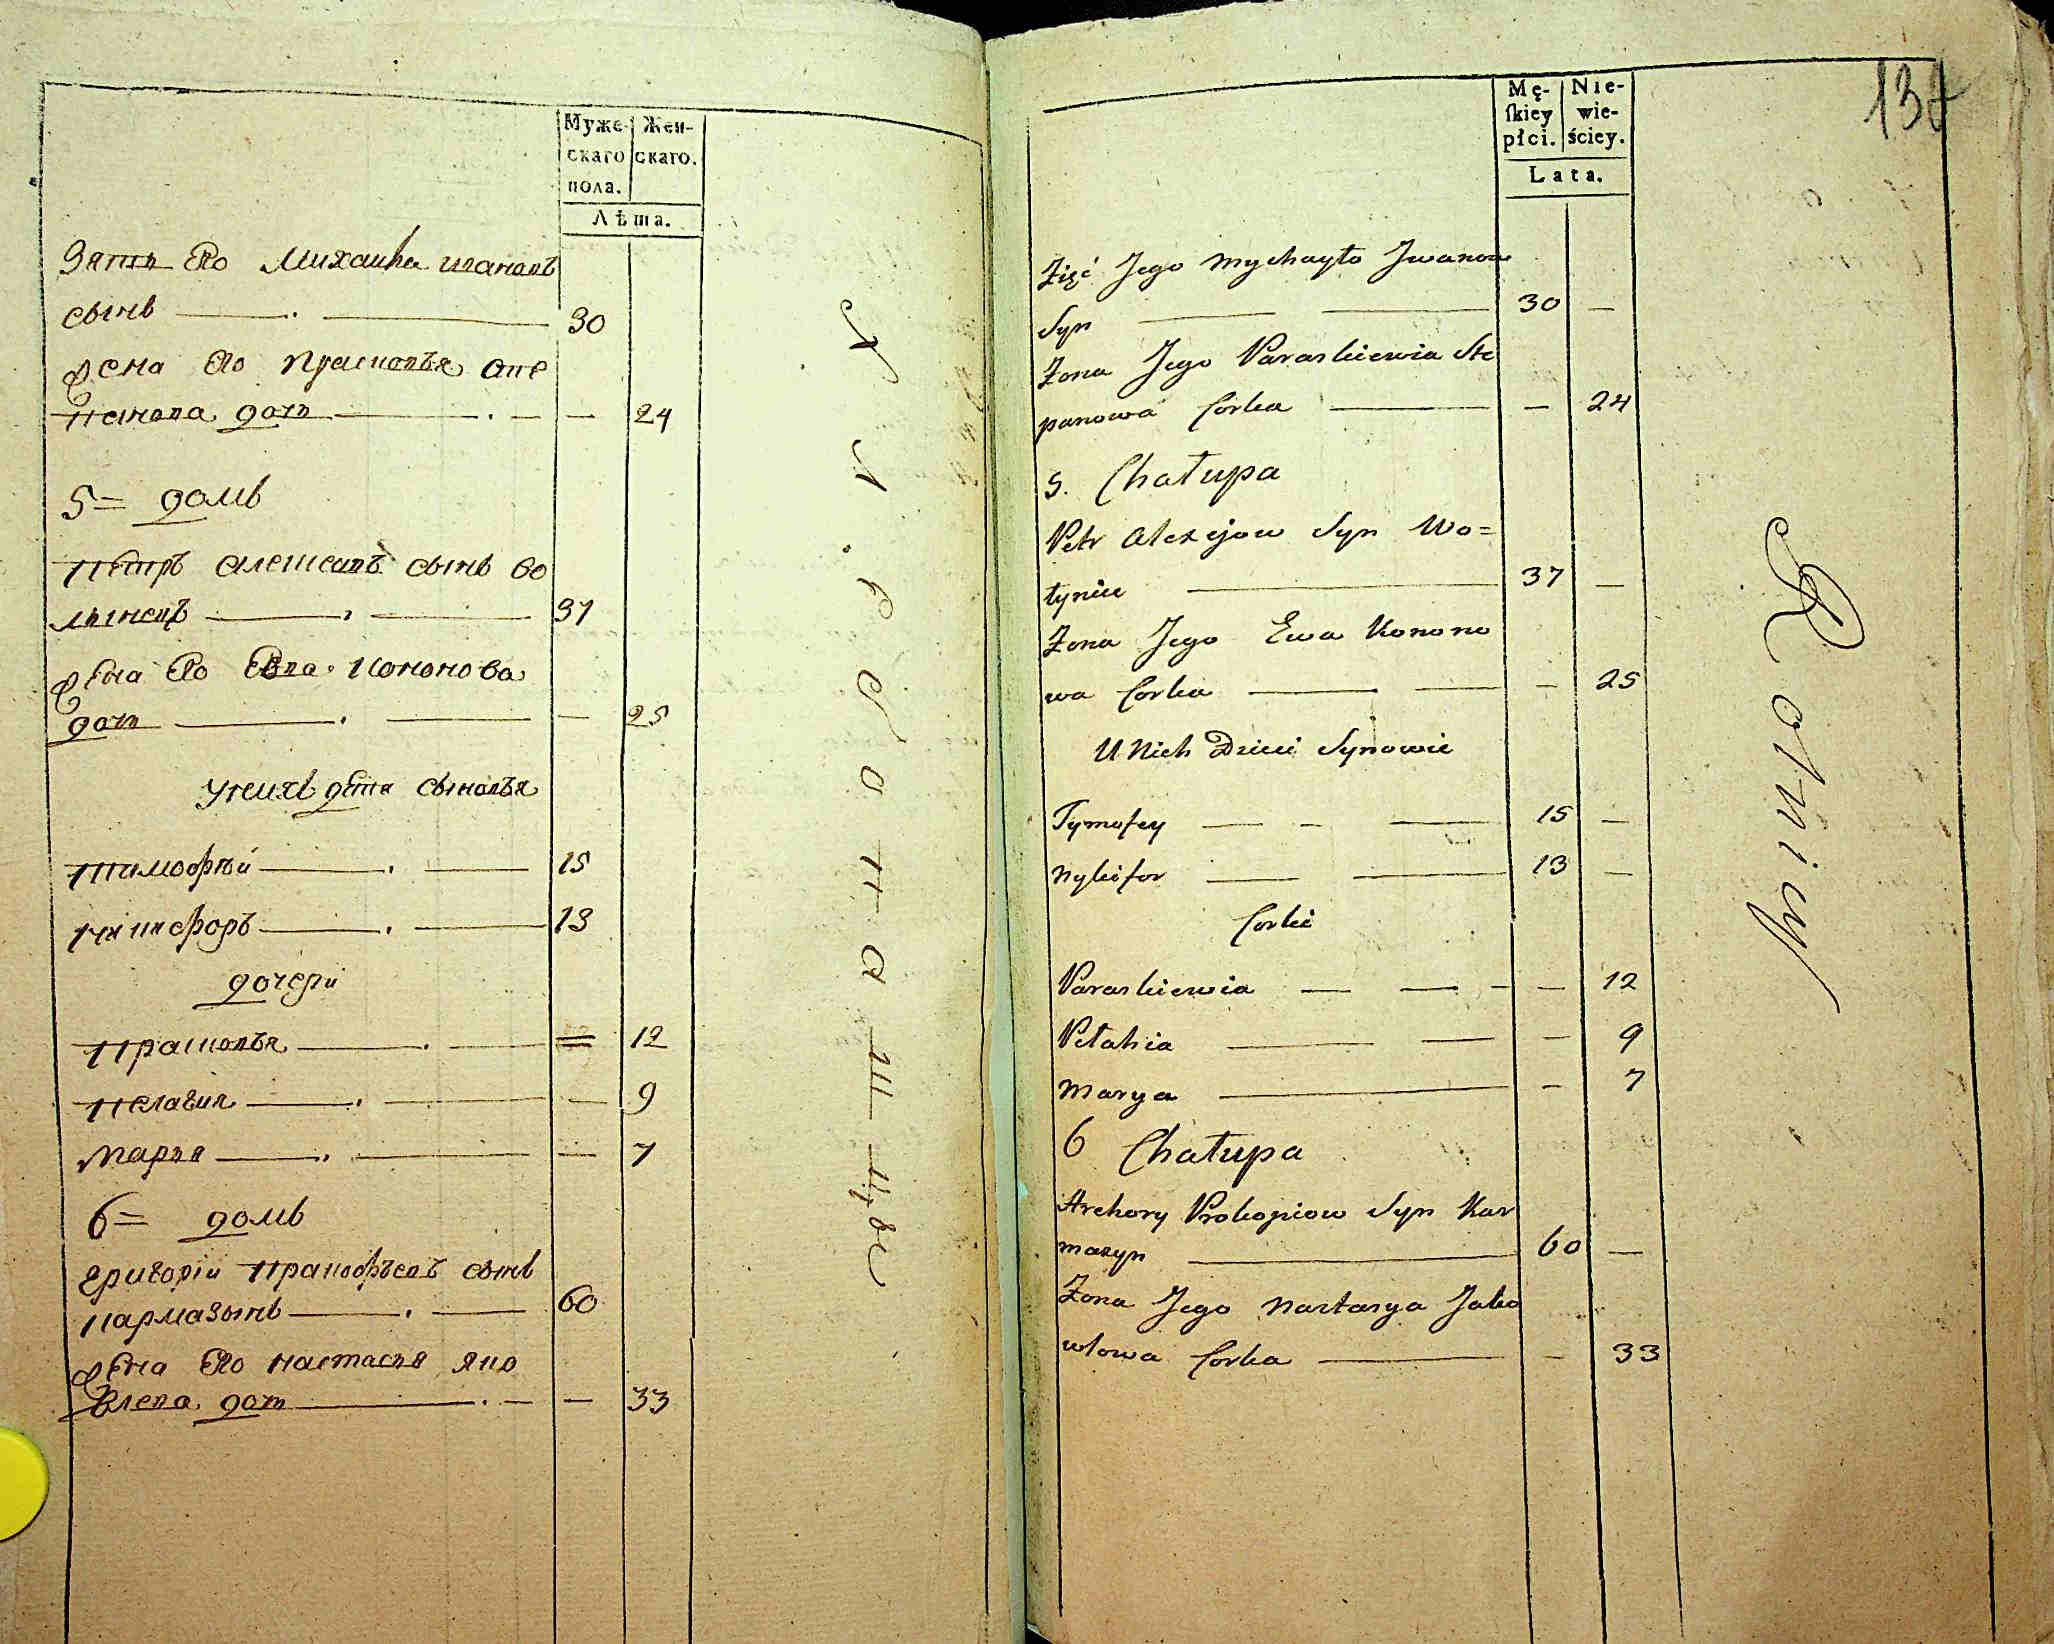 Муже-
скаго
пола.
Жен-
скаго.
Лѣта.
Зять Его Михаила ивановъ
сынъ 30
жена Его Прасковья Сте
панова дочь — 24
5= домъ
Петръ Алексеевъ сынъ во
линецъ 37
жена Его Евва Кононова
дочь — 25
У нихъ дѣти сыновья
Тимофѣй 15
Никифоръ 13
дочери
Прасковья = 12
Пелагия — 9
Марья — 7
6= домъ
Григорiй Пракофьевъ сынъ
Кармазынъ 60
жена Его Настасья Яко
влева дочь — 33
хлѣбопашцы
137
Mę-
ſkiey
płci.
Nie-
wie-
ściey.
Lata.
Zięć Jego Mychayło Jwanow
Syn 30 —
Zona Jego Paraskiewia Ste
panowa Corka — 24
5. Chałupa
Petr Alexejow Syn Wo=
łyniec 37 —
Zona Jego Ewa Konono
wa Corka — 25
U Nich Dzieci Synowie
Tymofey 15 —
Nykifor 13 —
Corki
Paraskiewia — 12
Pełahia — 9
Marya — 7
6 Chałupa
Hrehory Prokopiow Syn Kar
mazyn 60 —
Zona Jego Nastasya Jako
wlowa Corka — 33
Rolnicy